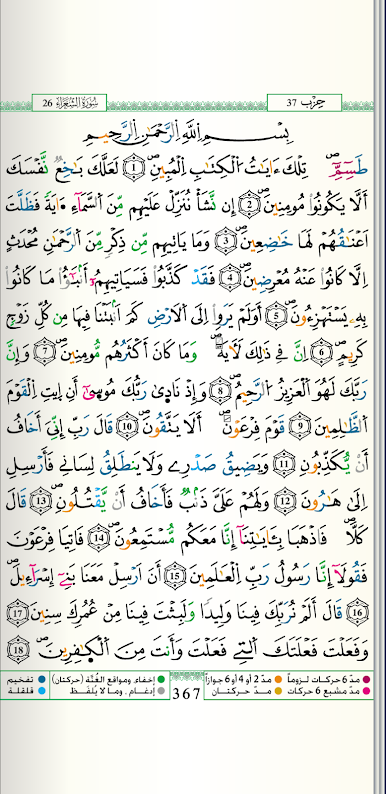 حِزْب 37
سُورَةُ الشُّعَرَاءِ 26
بِسْمِ اللَّهِ الرَّحْمَٰنِ الرَّحِيمِ
طَسِٓمِّٓۖ تِلْكَ ءَايَٰتُ اُلْكِتَٰبِ اِلْمُبِينِۖ 1 لَعَلَّكَ بَٰخِعٞ نَّفْسَكَ
أَلَّا يَكُونُواْ مُومِنِينَۖ 2 إِن نَّشَأْ نُنَزِّلْ عَلَيْهِم مِّنَ اَلسَّمَآءِ اٰيَةٗ فَظَلَّتَ
اَعْنَٰقُهُمْ لَهَا خَٰضِعِينَۖ 3 وَمَا يَاتِيهِم مِّن ذِكْرٖ مِّنَ اَلرَّحْمَٰنِ مُحْدَثٍ
اِلَّا كَانُواْ عَنْهُ مُعْرِضِينَۖ 4 فَقَدْ كَذَّبُواْ فَسَيَاتِيهِمُۥٓ أَنۢبَٰٓؤُاْ مَا كَانُواْ
بِهِۦ يَسْتَهْزِءُونَۖ 5 أَوَلَمْ يَرَوِاْ اِلَى اَلَارْضِ كَمَ اَنۢبَتْنَا فِيهَا مِن كُلِّ زَوْجٖ
كَرِيمٍۖ 6 اِنَّ فِي ذَٰلِكَ لَأٓيَةٗۖ وَمَا كَانَ أَكْثَرُهُم مُّومِنِينَۖ 7 وَإِنَّ
رَبَّكَ لَهُوَ اَلْعَزِيزُ اُلرَّحِيمُۖ 8 وَإِذْ نَادَىٰ رَبُّكَ مُوسَىٰٓ أَنِ اِيتِ اِلْقَوْمَ
اَلظَّٰلِمِينَ 9 قَوْمَ فِرْعَوْنَۖ أَلَا يَتَّقُونَۖ 10 قَالَ رَبِّ إِنِّيَ أَخَافُ
أَنْ يُّكَذِّبُونِ 11 وَيَضِيقُ صَدْرِے وَلَا يَنطَلِقُ لِسَانِي فَأَرْسِلِ
اِلَىٰ هَٰرُونَۖ 12 وَلَهُمْ عَلَيَّ ذَنۢبٞ فَأَخَافُ أَنْ يَّقْتُلُونِۖ 13 قَالَ
كَلَّاۖ فَاذْهَبَا بِـَٔايَٰتِنَآ إِنَّا مَعَكُم مُّسْتَمِعُونَۖ 14 فَاتِيَا فِرْعَوْنَ
فَقُولَآ إِنَّا رَسُولُ رَبِّ اِلْعَٰلَمِينَ 15 أَنَ اَرْسِلْ مَعَنَا بَنِےٓ إِسْرَآءِيلَۖ
16 قَالَ أَلَمْ نُرَبِّكَ فِينَا وَلِيداٗ وَلَبِثْتَ فِينَا مِنْ عُمُرِكَ سِنِينَ 17
وَفَعَلْتَ فَعْلَتَكَ اَلتِے فَعَلْتَ وَأَنتَ مِنَ اَلْكٰ۪فِرِينَۖ 18
مدّ 6 حركات لزوماً مدّ 2 أو 4 أو 6 جوازاً إخفاء، ومواقع الغُنَّة (حركتان) تفخيم
مدّ مشبع 6 حركات مدّ حركتان إدغام، وما لا يُلفَظ قلقلة
367